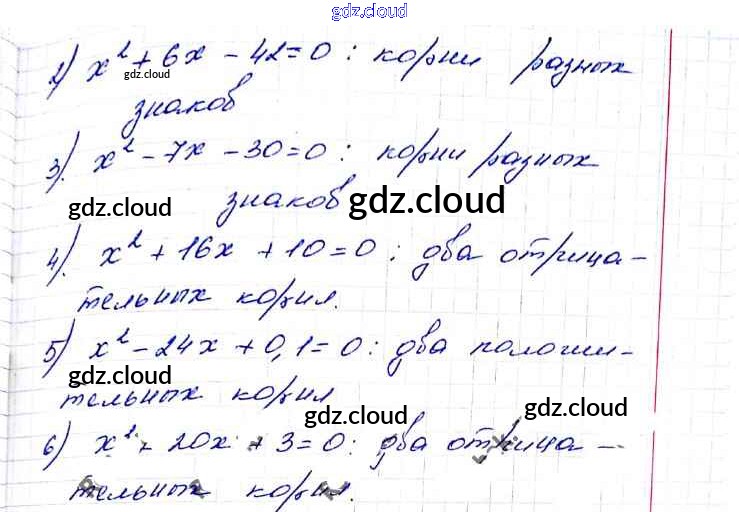 gdz.cloud
2) x² + 6x - 42 = 0 : корни разных
gdz.cloud
знаков
3). x² - 7x - 30 = 0 : корни разных
знаков gdz.cloud
gdz.cloud
4). x² + 16x + 10 = 0 : два отрица-
тельных корня.
5) x² - 24x + 0,1 = 0 : два положи-
gdz.cloud
тельных корня
gdz.cloud gdz.cloud
6) x² - 20x + 3 = 0 : два отрица-
тельных корня.